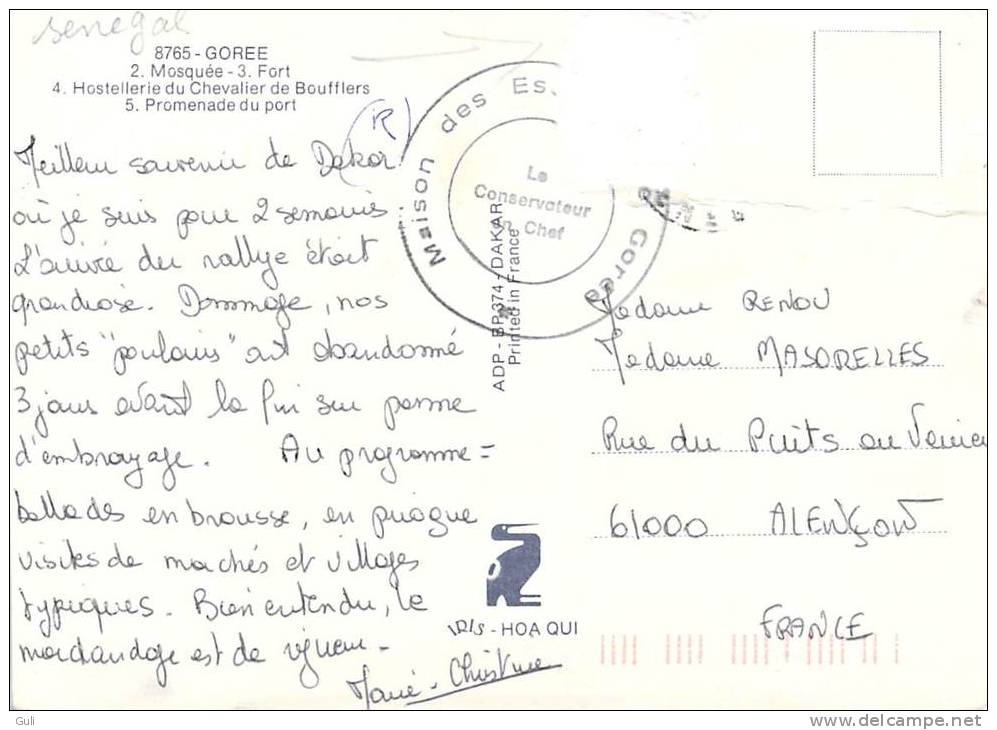 senegal
8765 - GOREE
2. Mosquée - 3. Fort
4. Hostellerie du Chevalier de Boufflers
5. Promenade du port
(R)
Meilleur souvenir de Dakar
où je suis pour 2 semaines.
L'arrivée du rallye était
grandiose. Dommage, nos
petits "poulains" ont abandonné
3 jours avant la fin sur panne
d'embrayage. Au programme =
ballades en brousse, en pirogue
visites de marchés et villages
typiques. Bien entendu, le
marchandage est de vigueur -
Marie-Christine
Maison des Es
Gorée
Le
Conservateur
en Chef
ADP - BP 374 - DAKAR
Printed in France
IRIS - HOA QUI
Madame RENOU
Madame MASORELLES
Rue du Puits au Verrier
61000 ALENÇON
FRANCE
Guli
www.delcampe.net